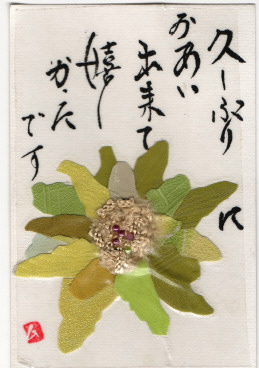 久しぶりに
おあい
出来て
嬉し
かった
です